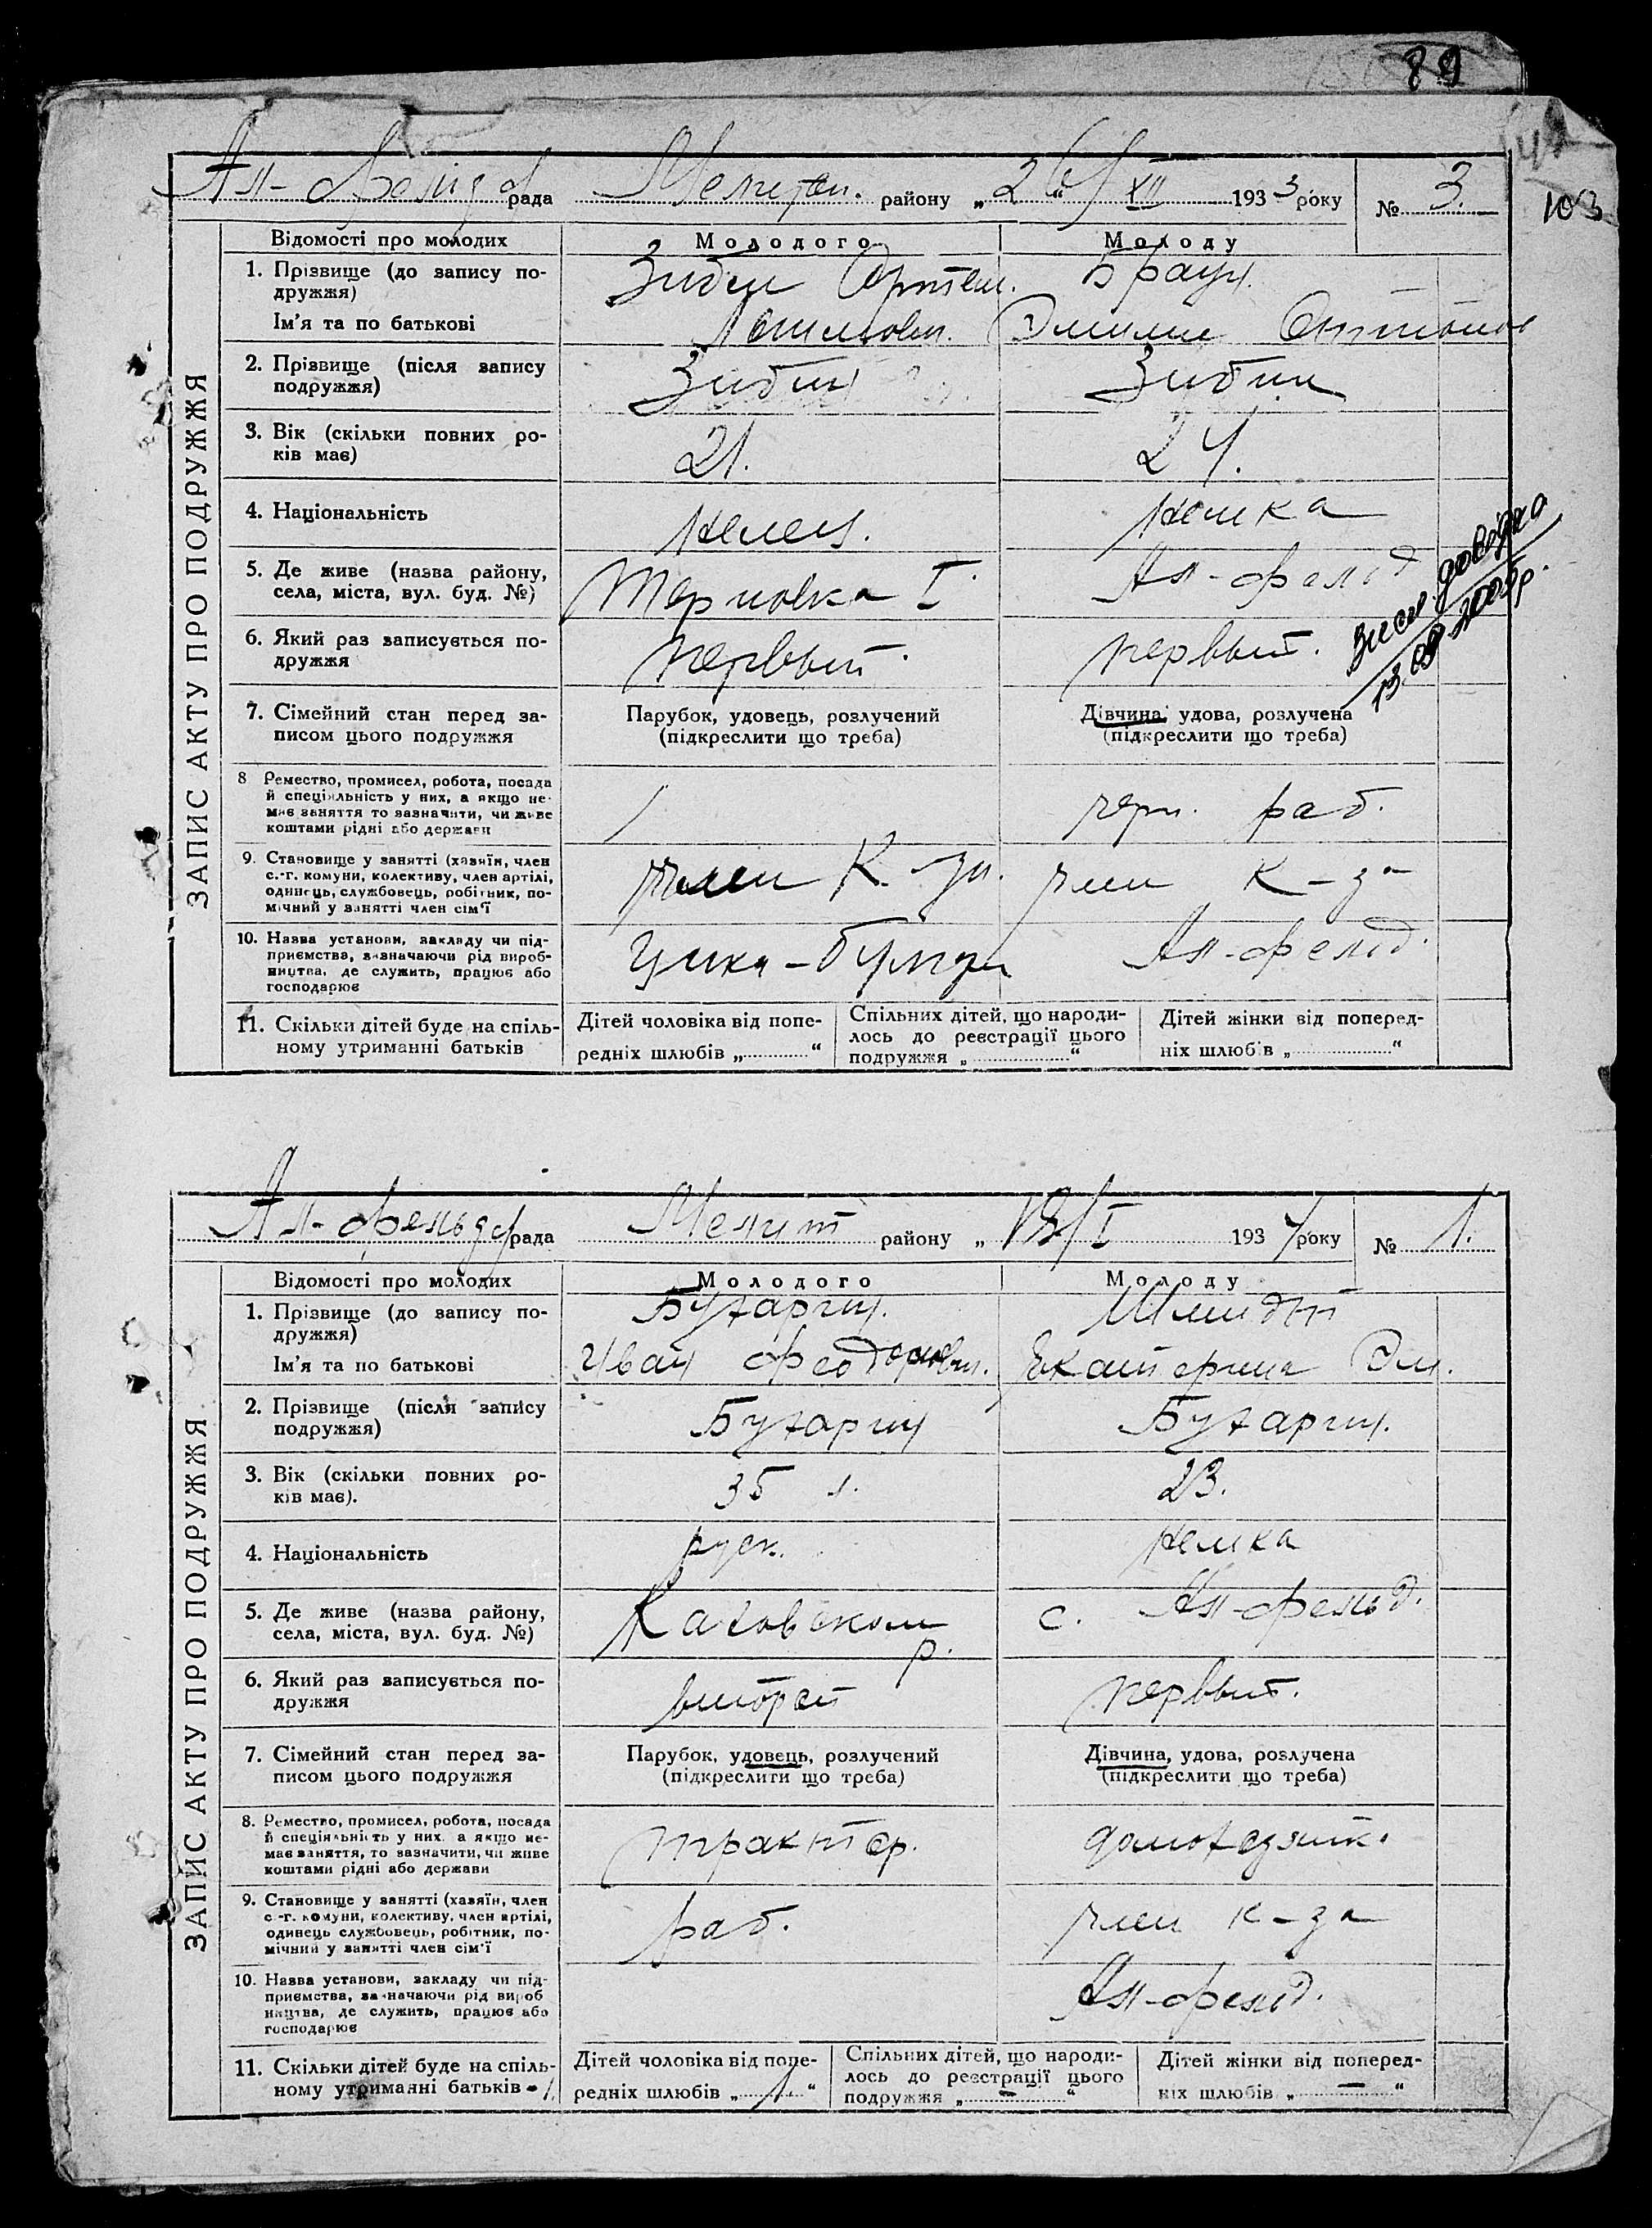 89
103
Ал-Фельд рада Мелитоп. району „26/XII 1933 року № 3.
ЗАПИС АКТУ ПРО ПОДРУЖЖЯ
Відомості про молодих Молодого Молоду
1. Прізвище (до запису по-
дружжя)
Браун.
Ім'я та по батькові
2. Прізвище (після запису
подружжя)
Зибин Зибин
3. Вік (скільки повних ро-
ків має)
21. 24.
4. Національність
немец. немка
5. Де живе (назва району,
села, міста, вул. буд. №)
Терновка I Ал-фельд
6. Який раз записується по-
дружжя
первый. первый.
7. Сімейний стан перед за-
писом цього подружжя
Парубок, удовець, розлучений
(підкреслити що треба)
Дівчина, удова, розлучена
(підкреслити що треба)
довідка
13.09.2005р.
8 Ремество, промисел, робота, посада
й спеціяльність у них, а якщо не-
має заняття то зазначити, чи живе
коштами рідні або держави
черн. раб.
9. Становище у занятті (хазяїн, член
с.-г. комуни, колективу, член артілі,
одинець, службовець, робітник, по-
мічний у занятті член сім'ї
член К-за. член К-за
10. Назва установи, закладу чи під-
приємства, зазначаючи рід вироб-
ництва, де служить, працює або
господарює
Ал-фельд.
11. Скільки дітей буде на спіль-
ному утриманні батьків
Дітей чоловіка від попе-
редніх шлюбів „ “
Спільних дітей, що народи-
лось до реєстрації цього
подружжя „ “
Дітей жінки від поперед-
ніх шлюбів „ “
Ал-фельдс рада Мелит району „ /I 1934 року № 1.
ЗАПИС АКТУ ПРО ПОДРУЖЖЯ
Відомості про молодих Молодого Молоду
1. Прізвище (до запису по-
дружжя)
Бухарин. Шмидт
Ім'я та по батькові
Иван Феодорович. Екатерина Эм.
2. Прізвище (після запису
подружжя)
Бухарин Бухарин.
3. Вік (скільки повних ро-
ків має).
35 л. 23.
4. Національність
руск. немка
5. Де живе (назва району,
села, міста, вул. буд. №)
Каховском р. с. Ал-фельд.
6. Який раз записується по-
дружжя
второй первый.
7. Сімейний стан перед за-
писом цього подружжя
Парубок, удовець, розлучений
(підкреслити що треба)
Дівчина, удова, розлучена
(підкреслити що треба)
8. Ремество, промисел, робота, посада
й спеціяльність у них, а якщо не-
має заняття, то зазначити, чи живе
коштами рідні або держави
трактор. домохозяйк.
9. Становище у занятті (хазяїн, член
с.-г. комуни, колективу, член артілі,
одинець службовець, робітник, по-
мічний у занятті член сім'ї
раб. член к-за
10. Назва установи, закладу чи під-
приємства, зазначаючи рід вироб
ництва, де служить, працює або
господарює
Ал-фельд.
11. Скільки дітей буде на спіль-
ному утриманні батьків - 1.
Дітей чоловіка від попе-
редніх шлюбів „ 1 “
Спільних дітей, що народи-
лось до реєстрації цього
подружжя „ — “
Дітей жінки від поперед-
ніх шлюбів „ — “